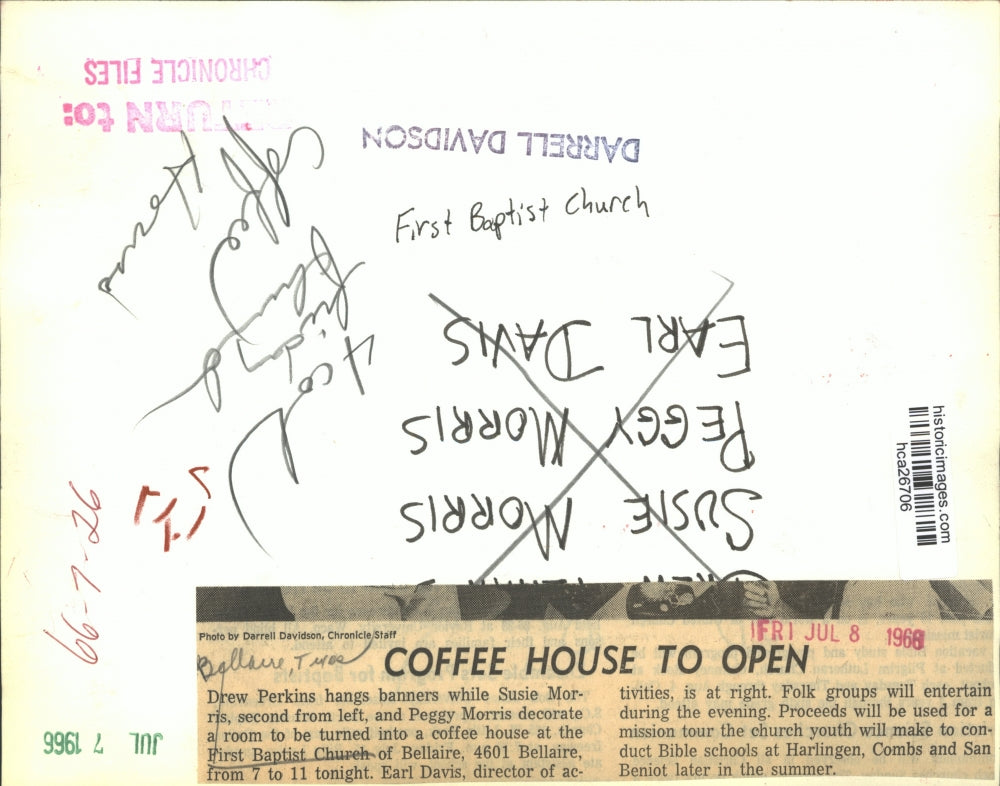 RETURN to:
CHRONICLE FILES
DARRELL DAVIDSON
First Baptist Church
SUSIE MORRIS
PEGGY MORRIS
EARL DAVIS
4 col
Friday
Coffee
66-7-26
JUL 7 1966
historicimages.com
hca26706
Photo by Darrell Davidson, Chronicle Staff
FRI JUL 8 1966
Bellaire, Texas
COFFEE HOUSE TO OPEN
Drew Perkins hangs banners while Susie Mor-
ris, second from left, and Peggy Morris decorate
a room to be turned into a coffee house at the
First Baptist Church of Bellaire, 4601 Bellaire,
from 7 to 11 tonight. Earl Davis, director of ac-
tivities, is at right. Folk groups will entertain
during the evening. Proceeds will be used for a
mission tour the church youth will make to con-
duct Bible schools at Harlingen, Combs and San
Beniot later in the summer.